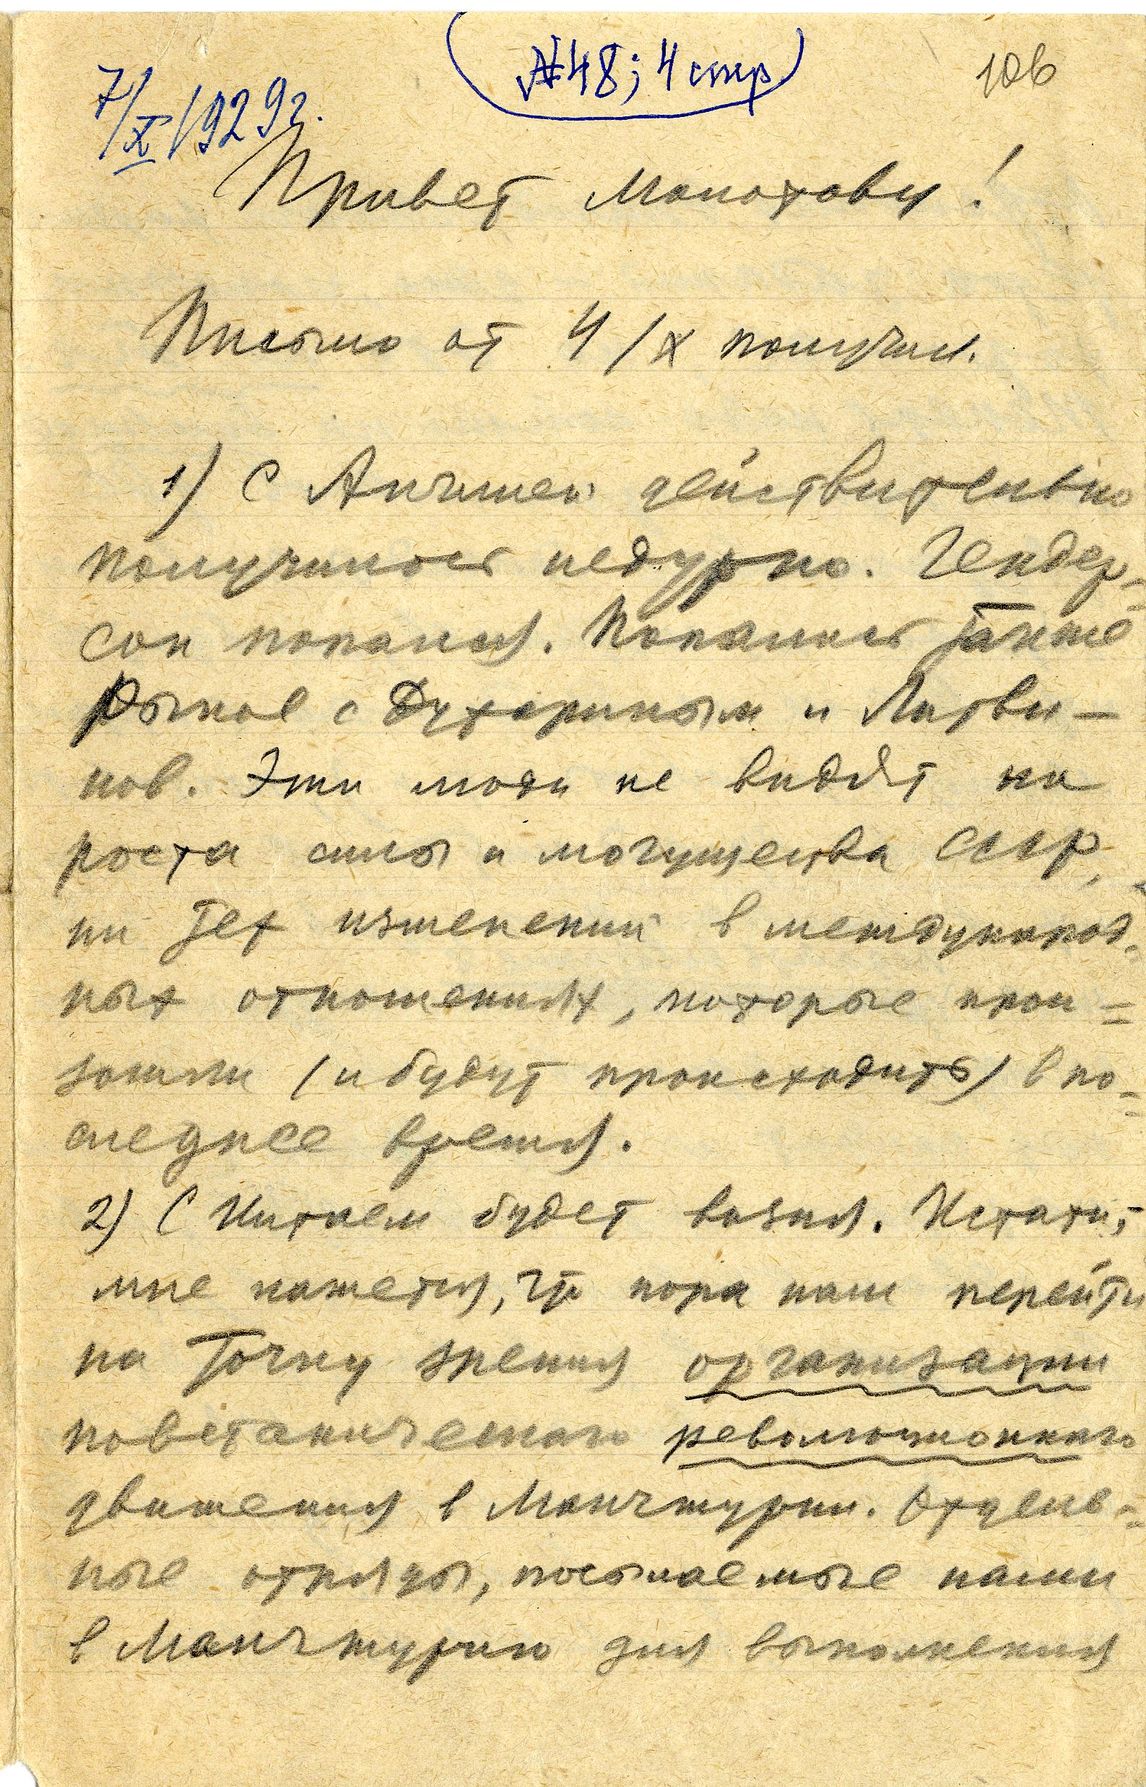 (№48; 4 стр)
106
7/X 1929г.
Привет Молотову!
Письмо от 4/X получил.
1) С Англией действительно
получилось недурно. Гендер-
сон попался. Попались также
Рыков с Бухариным и Литви-
нов. Эти люди не видят ни
роста силы и могущества СССР,
ни тех изменений в международ-
ных отношениях, которые прои-
зошли (и будут происходить) в по-
следнее время.
2) С Китаем будет возня. Кстати,
мне кажется, что пора нам перейти
на точку зрения организации
повстанческого революционного
движения в Манчжурии. Отдель-
ные отряды, посылаемые нами
в Манчжурию для выполнения